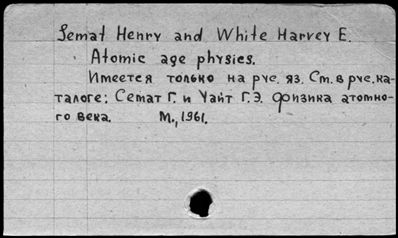 Semat Henry and White Harvey E.
Atomic age physics.
Имеется только на рус. яз. См. в рус. ка-
талоге: Семат Г. и Уайт Г.Э. Физика атомно-
го века. М., 1961.